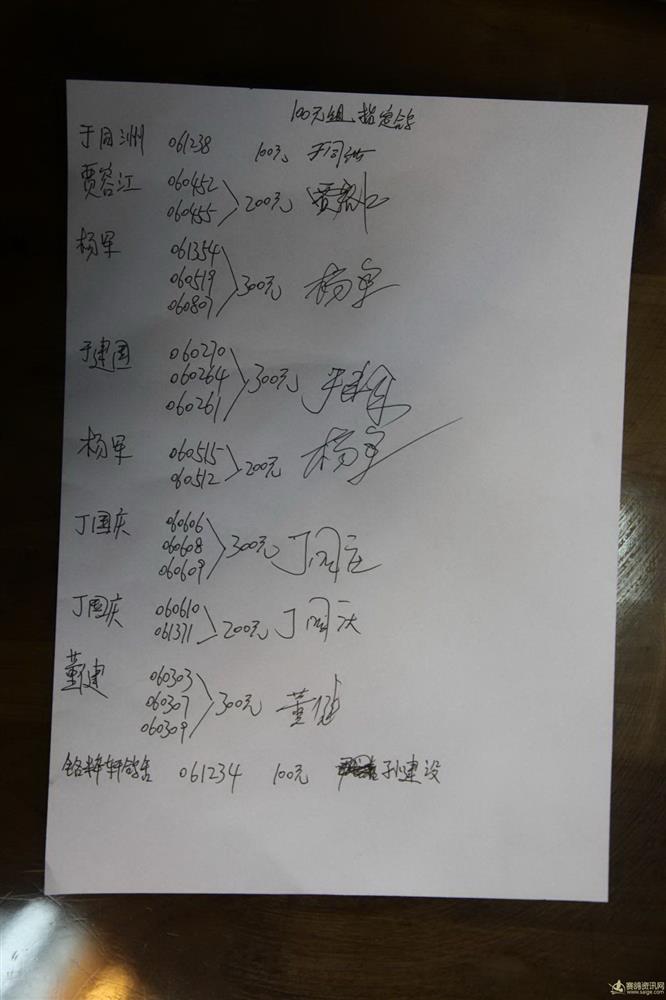 100元组 指定鸽
于同洲 061238 100元 于同洲
贾容江 060452
060455 200元
杨军 061354
060519 300元 杨军
060807
于建国 060270
060264 300元
060261
杨军 060515
060512 200元 杨军
丁国庆 060606
060608 300元 丁国庆
060609
丁国庆 060610
061371 200元 丁国庆
董健 060303
060307 300元 董健
060309
061234 100元 孙建设
赛鸽资讯网
www.saige.com